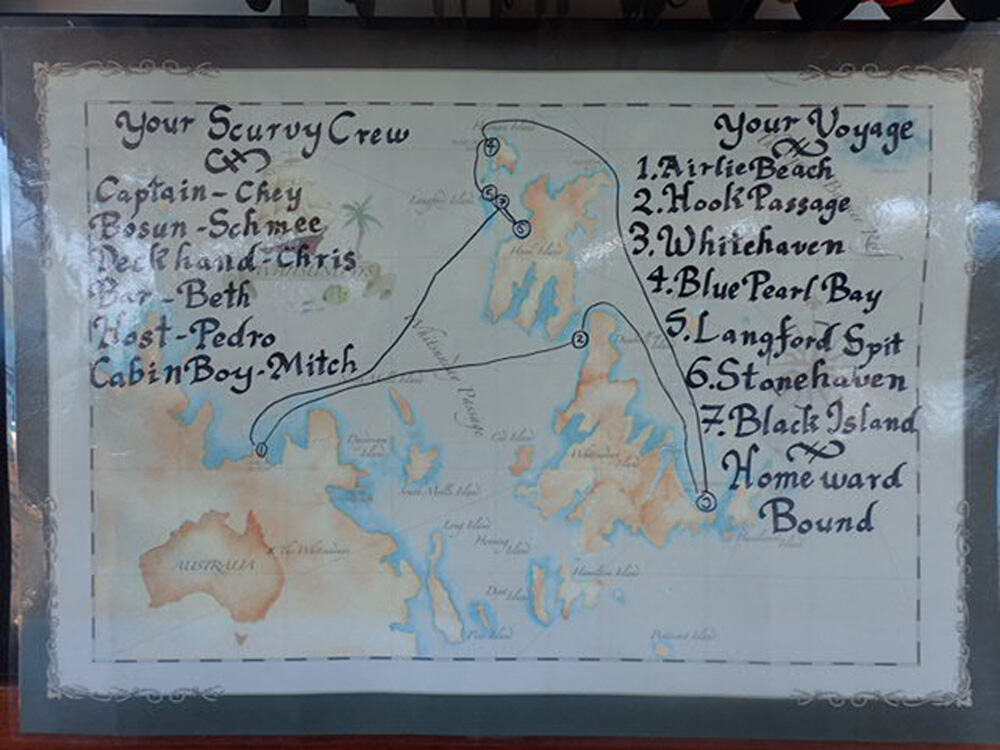 Your Scurvy Crew
Captain - Chey
Bosun - Schmee
Deckhand - Chris
Bar - Beth
Host - Pedro
Cabin Boy - Mitch
Your Voyage
1. Airlie Beach
2. Hook Passage
3. Whitehaven
4. Blue Pearl Bay
5. Langford Spit
6. Stonehaven
7. Black Island
Homeward
Bound
Island
4
Langford Island
6
7
5
Hook Island
2
Whitsunday Passage
1
Island
South Molle Island
Whitsunday Island
3
Long Island
Island
AUSTRALIA
The Whitsundays
Hamilton Island
Island
Island
Pentecost Island